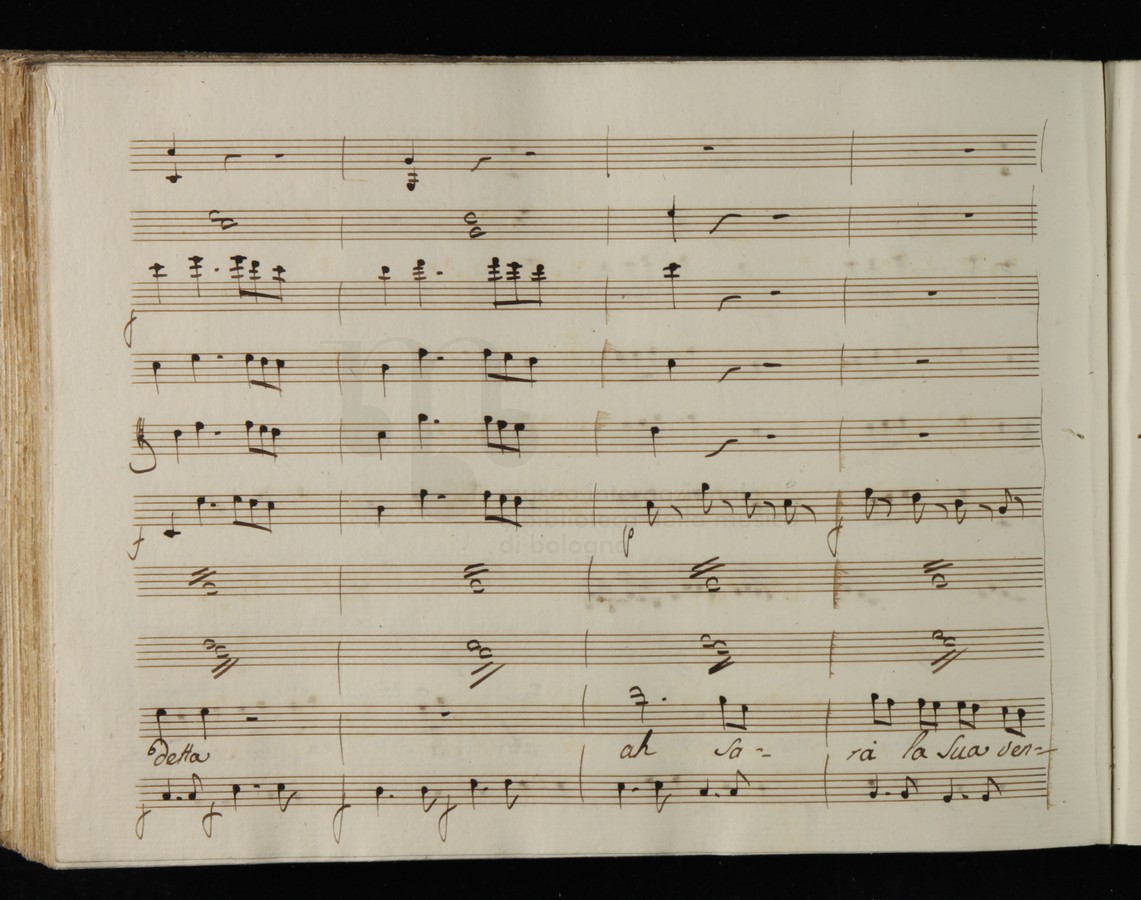 f
f
p
f
detta
ah sa-
rà la sua ven=
f
f
f
f
museo internazionale
e biblioteca della musica
di bologna